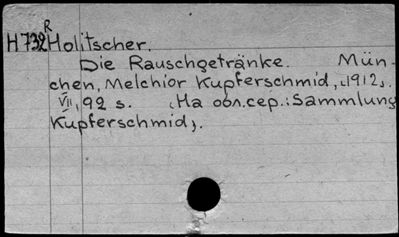 R
H732 Holitscher.
Die Rauschgetränke. Mün-
chen, Melchior Kupferschmid, [1912].
VII, 92 s. (На обл. сер.: Sammlung
Kupferschmid).